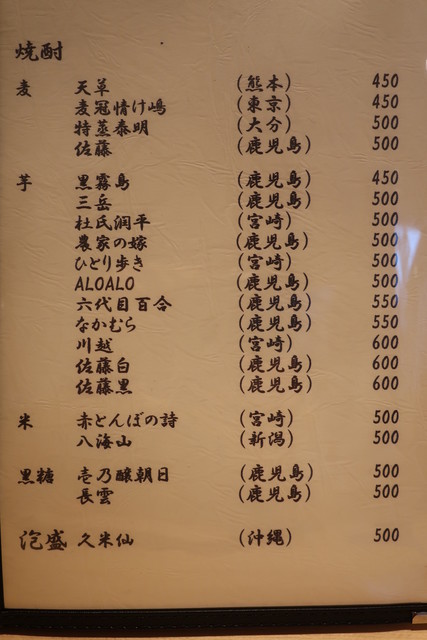 焼酎
麦 天草 (熊本) 450
麦冠情け嶋 (東京) 450
特蒸泰明 (大分) 500
佐藤 (鹿児島) 500
芋 黒霧島 (鹿児島) 450
三岳 (鹿児島) 500
杜氏潤平 (宮崎) 500
農家の嫁 (鹿児島) 500
ひとり歩き (宮崎) 500
ALOALO (鹿児島) 500
六代目百合 (鹿児島) 550
なかむら (鹿児島) 550
川越 (宮崎) 600
佐藤白 (鹿児島) 600
佐藤黒 (鹿児島) 600
米 赤とんぼの詩 (宮崎) 500
八海山 (新潟) 500
黒糖 壱乃醸朝日 (鹿児島) 500
長雲 (鹿児島) 500
泡盛 久米仙 (沖縄) 500